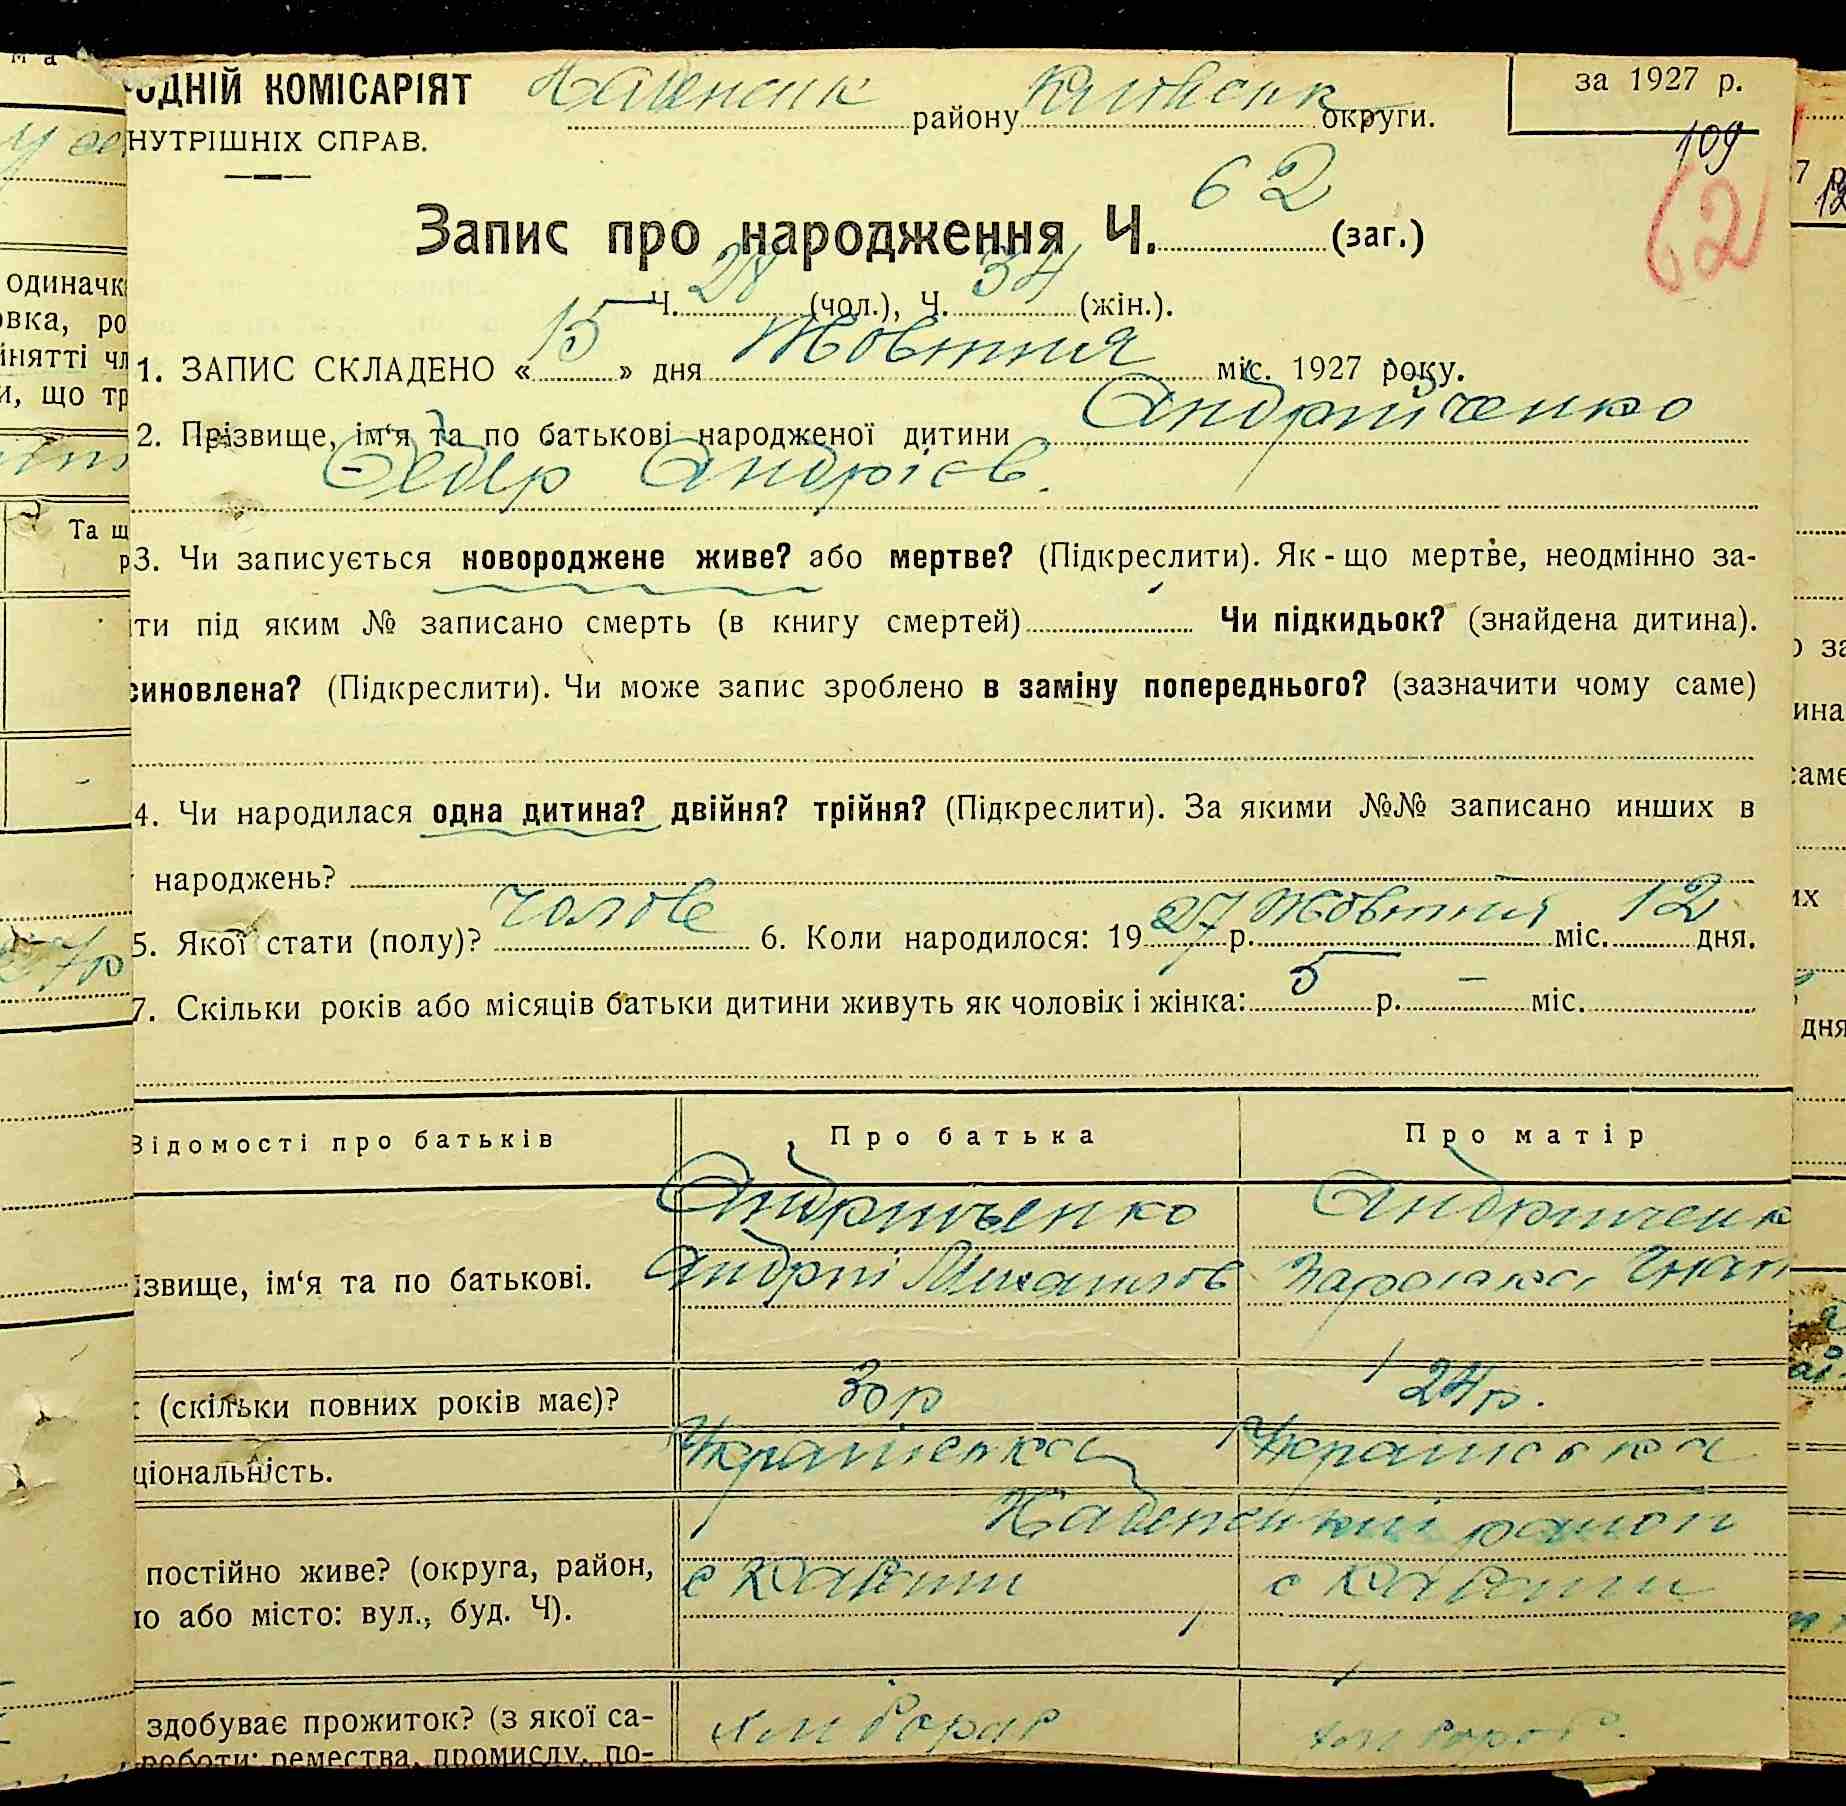 ОДНІЙ КОМІСАРІЯТ
НУТРІШНІХ СПРАВ.
району округи.
за 1927 р.
109
62
Запис про народження Ч. 62 (заг.)
Ч. 28 (чол.), Ч. 34 (жін.).
1. ЗАПИС СКЛАДЕНО « 15 » дня Жовтня міс. 1927 року.
2. Прізвище, ім‘я та по батькові народженої дитини Андрійченко
Федір Андрієв.
3. Чи записується новороджене живе? або мертве? (Підкреслити). Як-що мертве, неодмінно за-
ти під яким № записано смерть (в книгу смертей) Чи підкидьок? (знайдена дитина).
синовлена? (Підкреслити). Чи може запис зроблено в заміну попереднього? (зазначити чому саме)
4. Чи народилася одна дитина? двійня? трійня? (Підкреслити). За якими №№ записано инших в
народжень?
5. Якої стати (полу)? чолов 6. Коли народилося: 19 27 р. Жовтня міс. 12 дня.
7. Скільки років або місяців батьки дитини живуть як чоловік і жінка: 5 р. – міс.
Відомості про батьків Про батька Про матір
Андрійченко Андрійченк
ізвище, ім‘я та по батькові. Андрій Михайлов
(скільки повних років має)? 30р 24р.
ціональність. Українська Українська
район
постійно живе? (округа, район,
ло або місто: вул., буд. Ч).
здобуває прожиток? (з якої са-
хлібороб хлібороб.
роботи: ремества, промислу, по-
одиначк
овка, ро
йнятті чл
и, що тр
Та щ
р
7 р
12
о за
ина
саме
их
дня